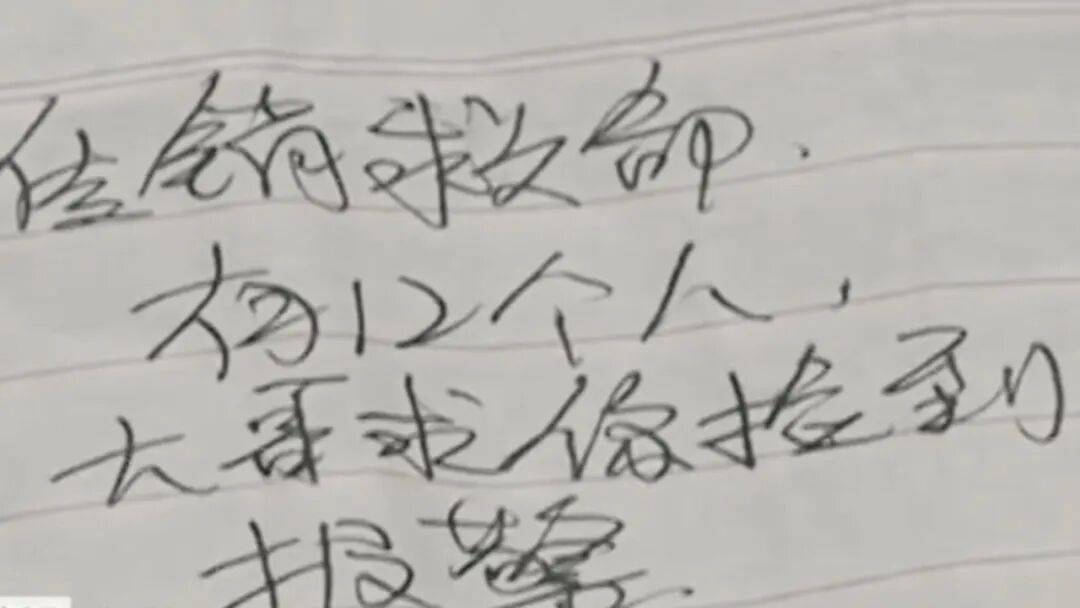 传销救命.
有12个人.
大哥求你捡到
报警.